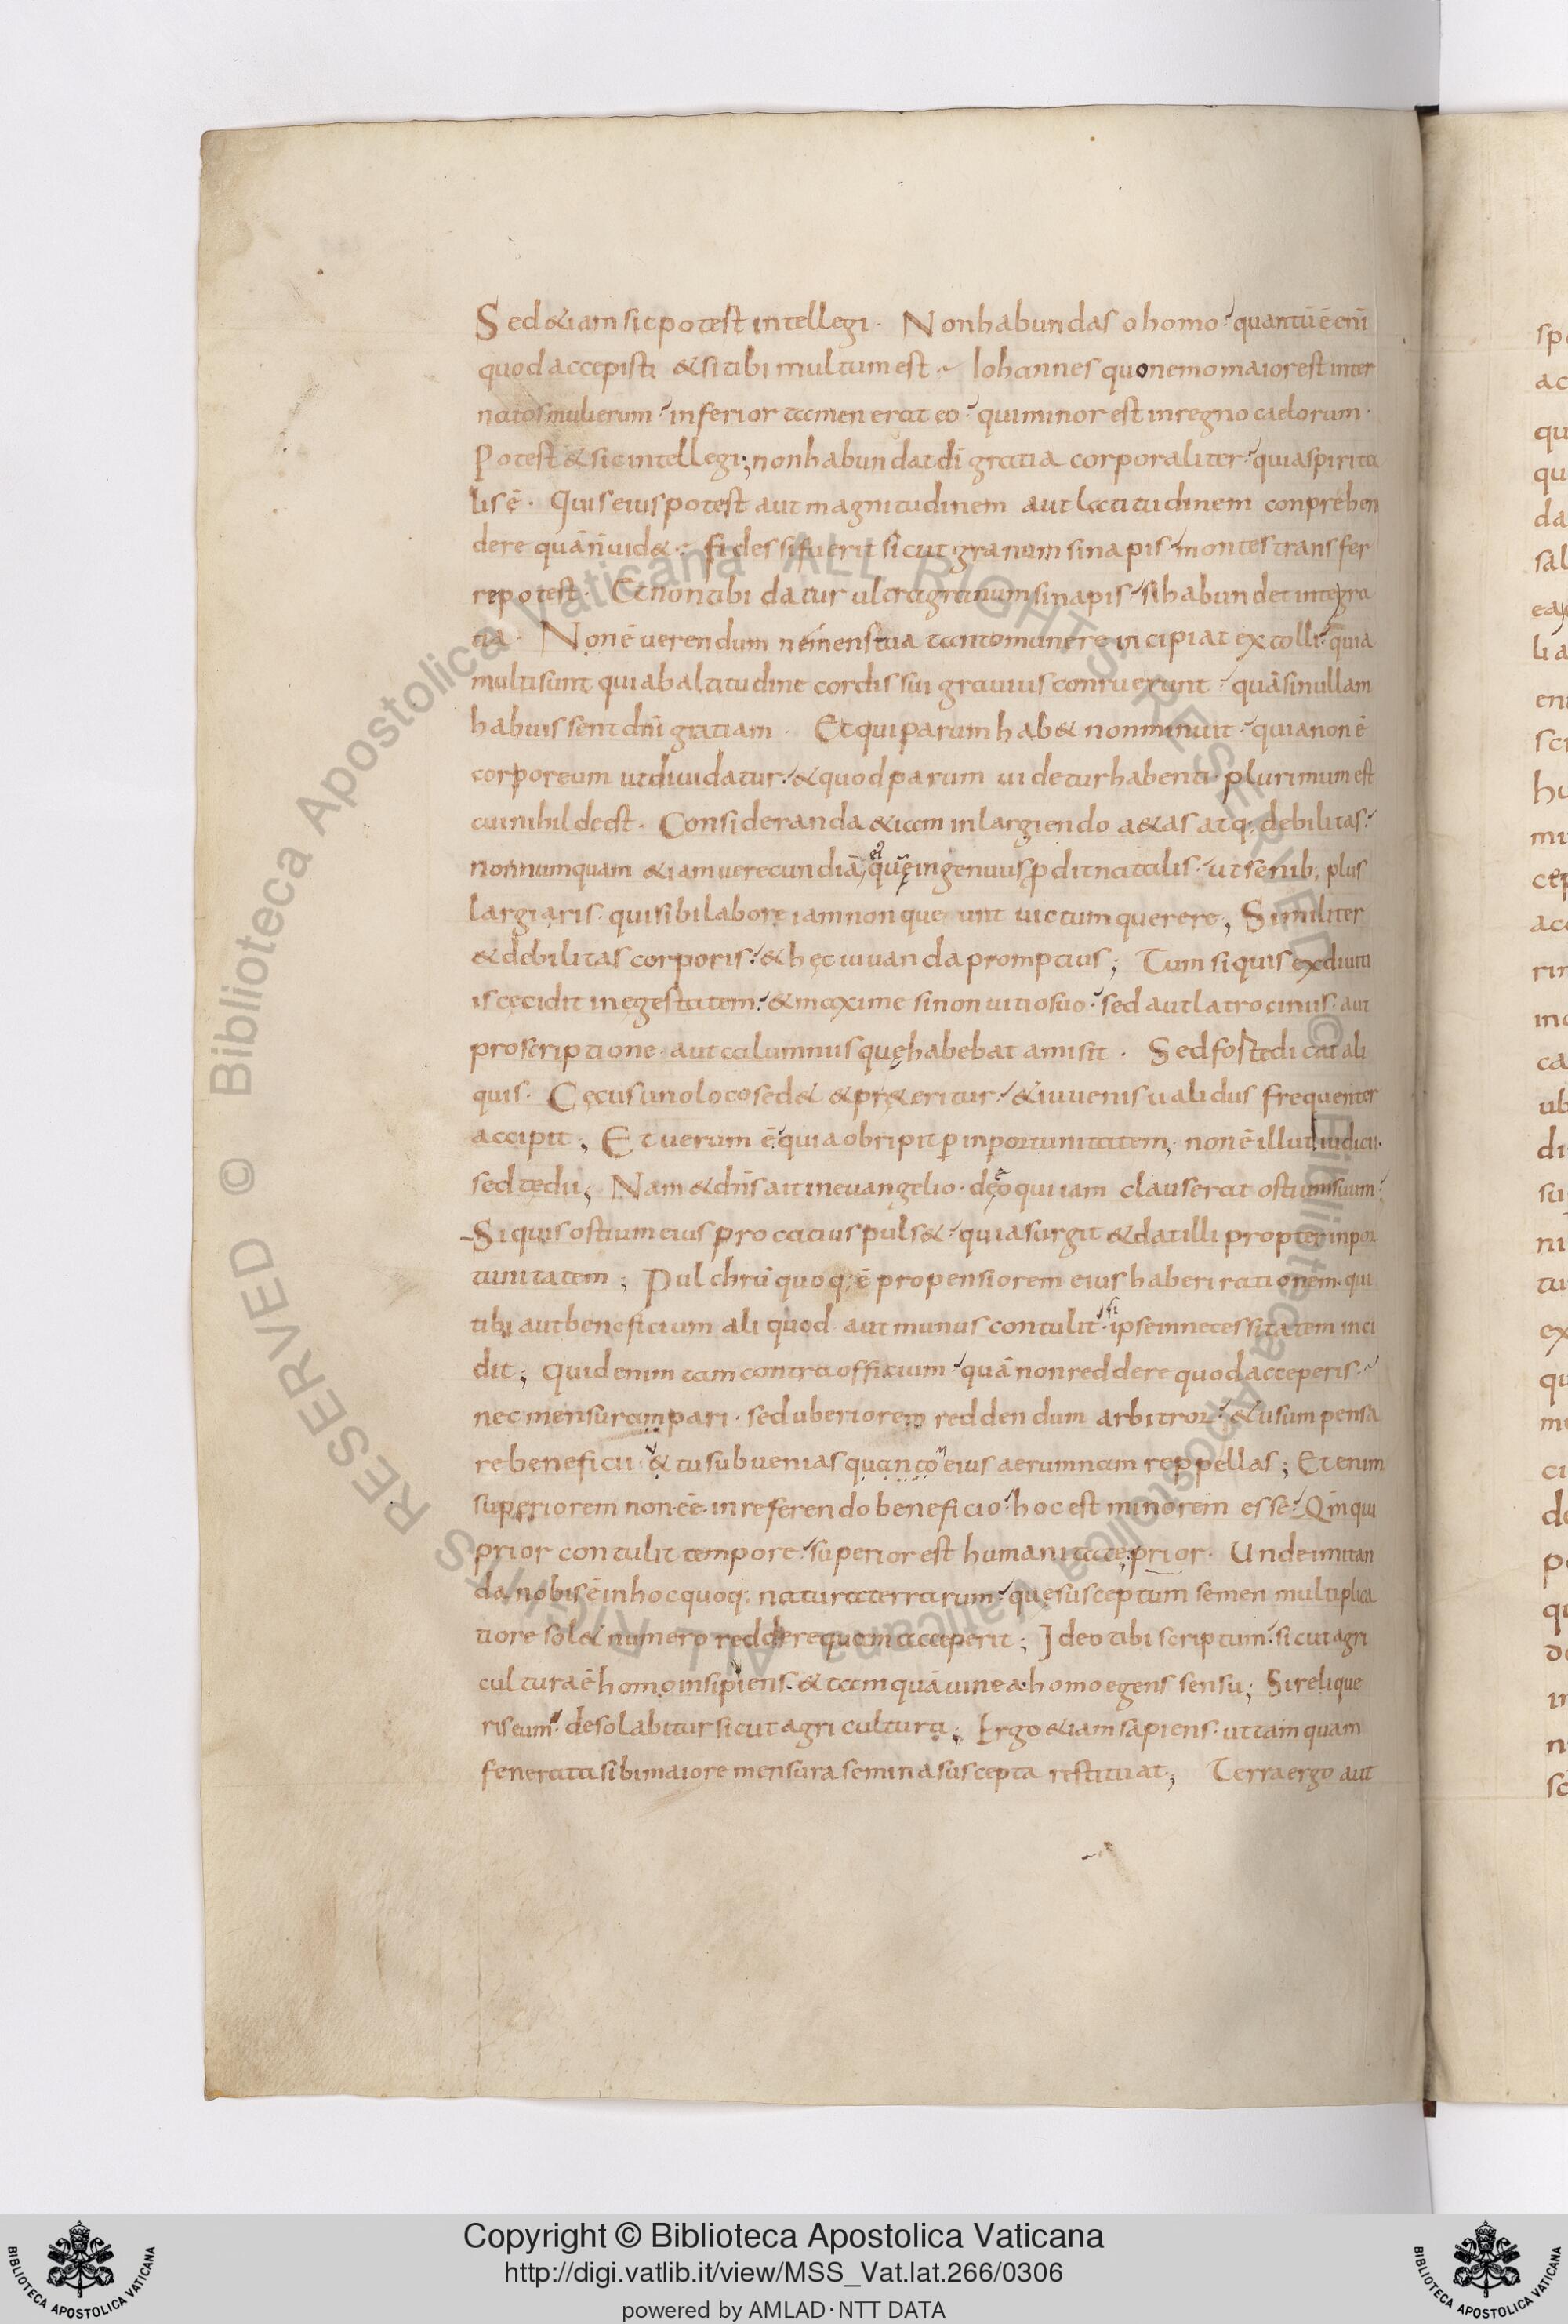 Sed &iam sic potest intellegi · Non habundas o homo · quantū ē eni
quod accepisti & si tibi multum est · Iohannes quo nemo maior est inter
natos mulierum · inferior tamen erat eo · qui minor est in regno caelorum ·
Potest & sic intellegi; non habundat dī gratia corporaliter · quia spirita
lis ē · Quis eius potest aut magnitudinem aut latitudinem conprehen
dere quā n̄ uid& · fides si fuerit sicut granum sinapis montes transfer
re potest · Et non tibi datur ultra granum sinapis · si habundet in te gra
tia · Non ē uerendum ne mens tua tanto munere incipiat extolli · quia
multi sunt qui ab altitudine cordis sui grauius conruerunt · quā si nullam
habuissent dn̄i gratiam · Et qui parum hab& non minuit · quia non ē
corporeum ut diuidatur · & quod parum uidetur habenti · plurimum est
cui nihil deest · Consideranda &iam in largiendo a&as atq; debilitas ·
nonnumquam &iam uerecundiā, quę ingenuus p̱dit natalis · ut senib; plus
largiaris · qui sibi labore iam non que unt uictum querere; Similiter
& debilitas corporis · & hęc iuuanda promptius; Tum si quis ex diuiti
is cecidit in egestatem · & maxime si non uitio suo · sed aut latrociniis · aut
proscriptione · aut calumniis quę habebat amisit · Sed fo ste dicat ali
quis · Cęcus uno loco sed& & pręeritur · & iuuenis ualidus frequenter
accipit; Et uerum ē quia obripit p̱ inportunitatem · non ē illut iudicii ·
sed tedii; Nam & dn̄s ait in euangelio · de eo qui iam clauserat ostium suum ·
Si quis ostium eius procatius puls& · quia surgit & dat illi propter inpor
tunitatem; Pulchrū quoq; ē propensiorem eius haberi rationem · qui
tibi aut beneficium aliquod aut munus contulit · si ipse in necessitatem inci
dit; Quid enim tam contra officium · quā non reddere quod acceperis ·
nec mensuram pari · sed uberiorem reddendum arbitror · & usum pensa
re beneficii & tu subuenias quanto eius aerumnam reppellas; Etenim
superiorem non · eē · in referendo beneficio · hoc est minorem esse · Qm̄ qui
prior contulit tempore · superior est humanitate prior · Unde imitan
da nobis ē in hoc quoq; natura terrarum · quę susceptum semen multiplica
tiore sol& numero reddere quam acceperit; Ideo tibi scriptum · sicut agri
cultura ē homo insipiens · & tamquā uinea · homo egens sensu; Si relique
ris eum · desolabitur sicut agri cultura; Ergo &iam sapiens · ut tamquam
fenerata sibi maiore mensura semina suscepta restituat; Terra ergo aut
Copyright © Biblioteca Apostolica Vaticana
http://digi.vatlib.it/view/MSS_Vat.lat.266/0306
powered by AMLAD·NTT DATA